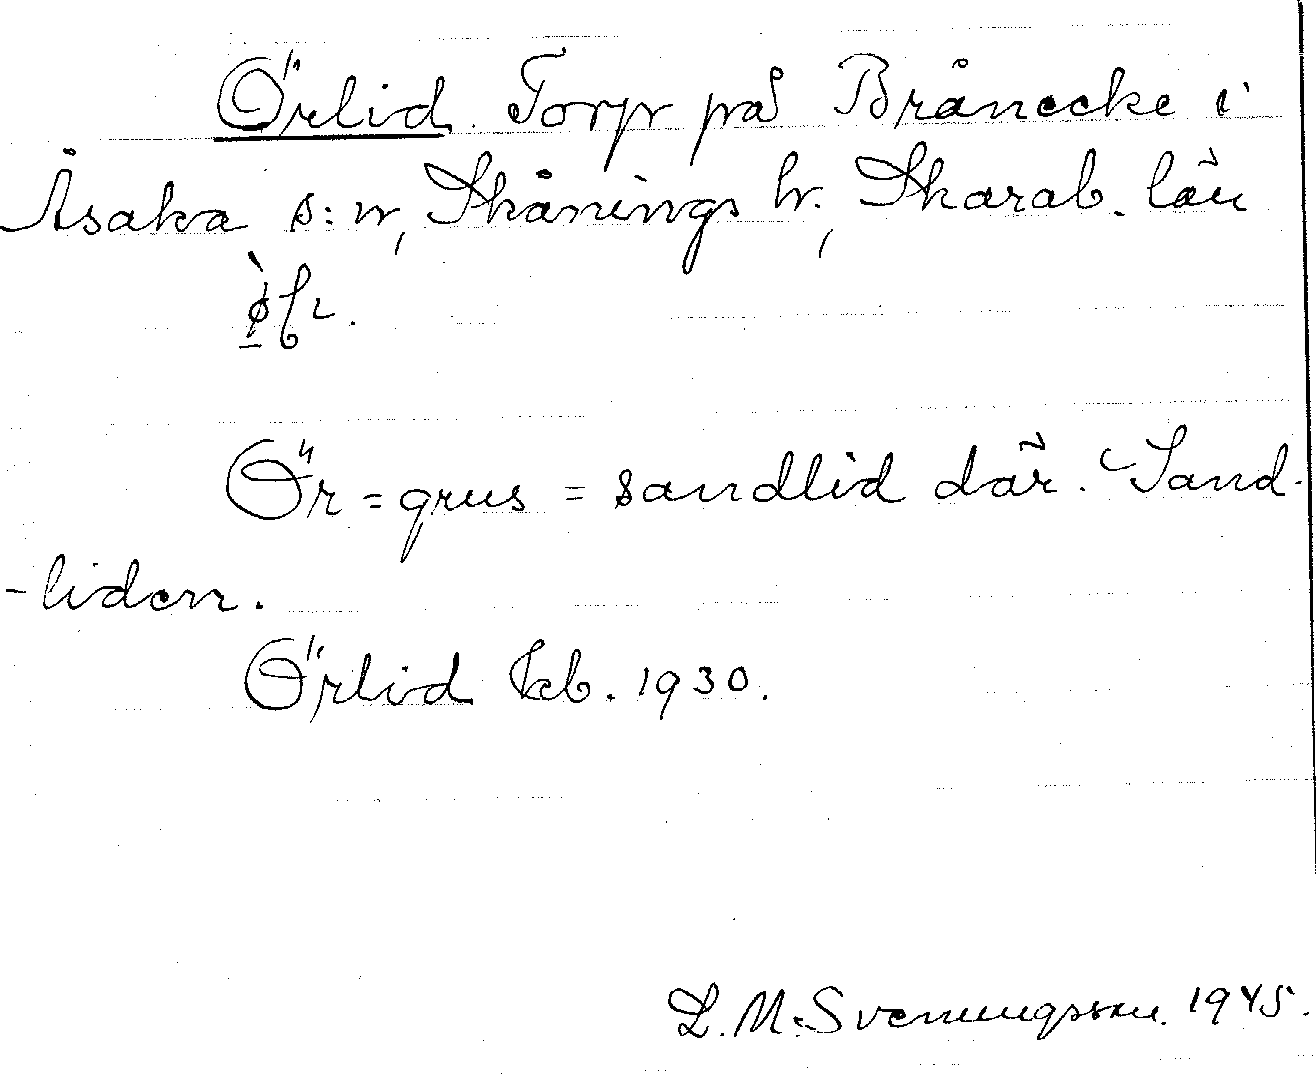 Örlid. Torp på Brånecke i
Åsaka s:n, Skånings hr., Skarab. län
Ör = grus = sandlid där. Sand-
-liden.
Örlid kb. 1930.
L. M. Svenungsson. 1945.